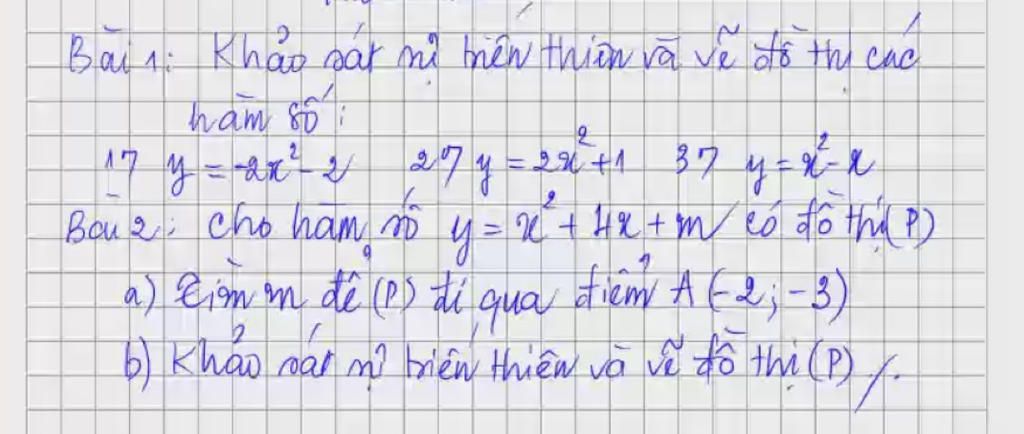 Bài 1: Khảo sát sự biến thiên và vẽ đồ thị các
hàm số:
1/ y = -2x² - 2 2/ y = 2x² + 1 3/ y = x² - x
Bài 2: Cho hàm số y = x² + 4x + m có đồ thị (P)
a) Tìm m để (P) đi qua điểm A (-2; -3)
b) Khảo sát sự biến thiên và vẽ đồ thị (P) /.